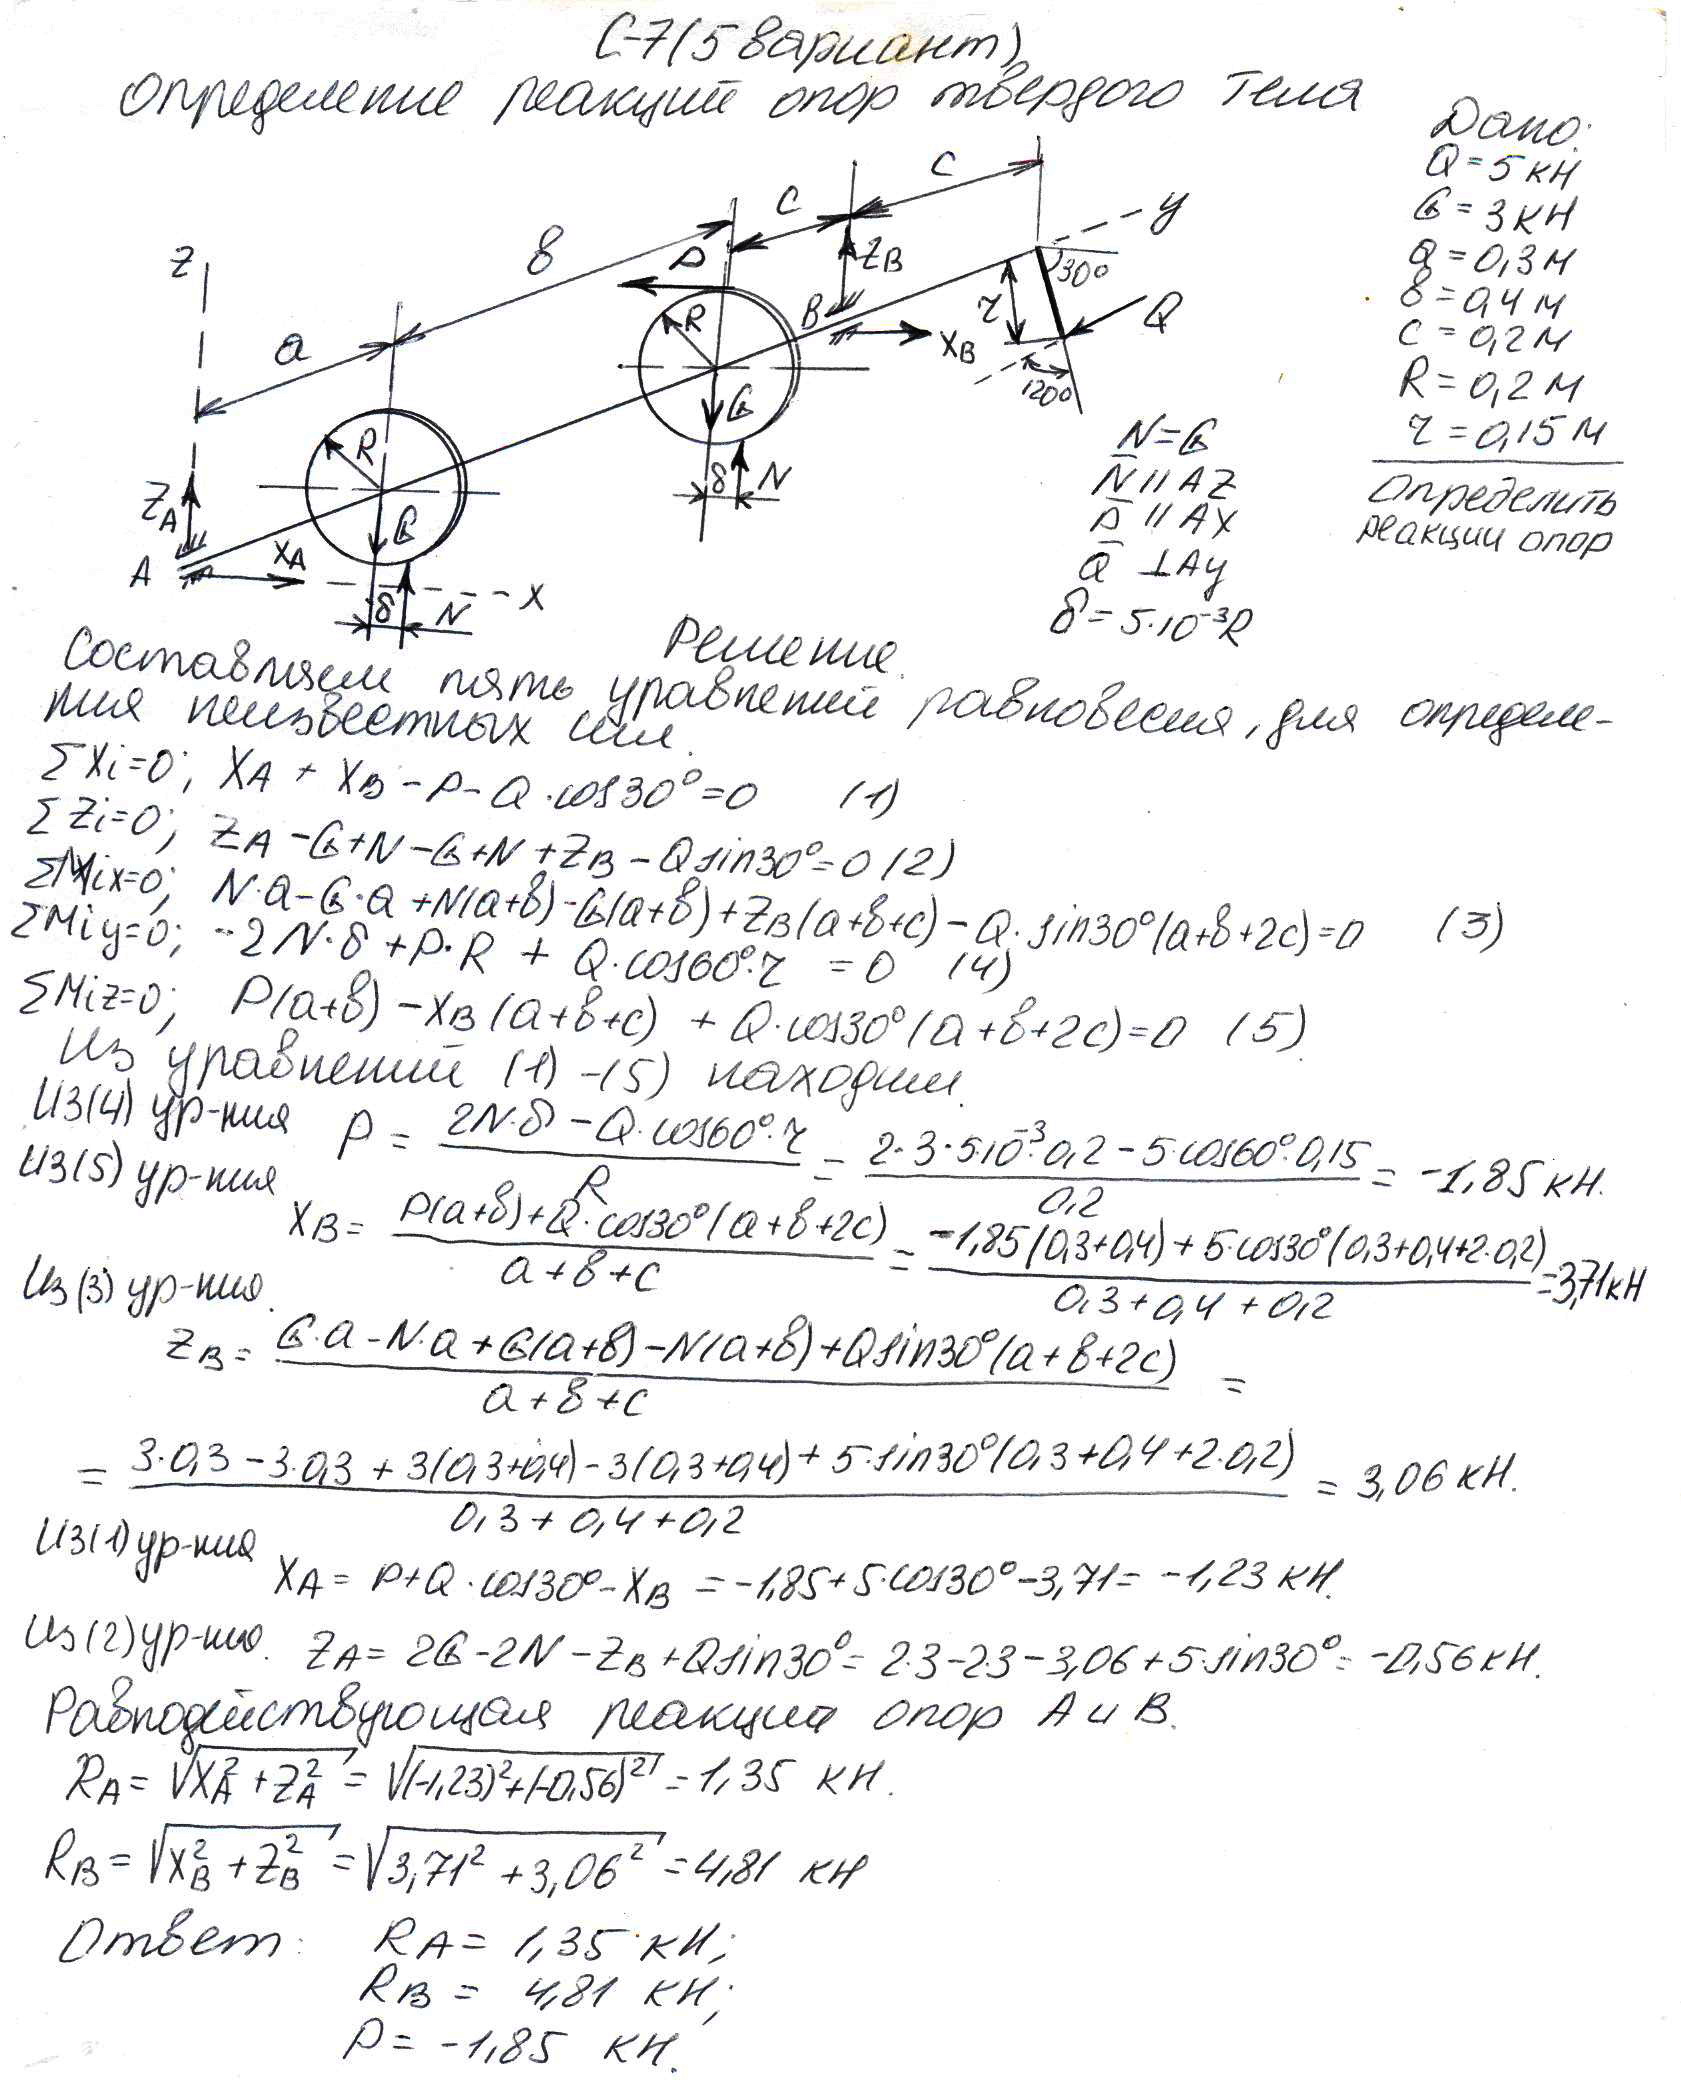 С-7(5 вариант)
Определение реакций опор твердого тела
Дано:
Q = 5 кН
G = 3 кН
a = 0,3 м
в = 0,4 м
c = 0,2 м
R = 0,2 м
r = 0,15 м
Определить
реакции опор
z
a
в
c
c
P
R
ZB
B
XB
y
30°
r
Q
120°
G
δ
N
R
G
ZA
A
XA
x
δ
N
N = G
N // AZ
P // AX
Q ⊥ Ay
δ = 5·10⁻³R
Решение.
Составляем пять уравнений равновесия, для определе-
ния неизвестных сил.
ΣXi=0; XA + XB - P - Q·cos30° = 0 (1)
ΣZi=0; ZA - G + N - G + N + ZB - Q sin30° = 0 (2)
ΣMix=0; N·a - G·a + N(a+в) - G(a+в) + ZB(a+в+c) - Q·sin30°(a+в+2c) = 0 (3)
ΣMiy=0; -2N·δ + P·R + Q·cos60°·r = 0 (4)
ΣMiz=0; P(a+в) - XB(a+в+c) + Q·cos30°(a+в+2c) = 0 (5)
Из уравнений (1)-(5) находим.
Из(4) ур-ния P = (2N·δ - Q·cos60°·r) / R = (2·3·5·10⁻³·0,2 - 5·cos60°·0,15) / 0,2 = -1,85 кН.
Из(5) ур-ния XB = (P(a+в) + Q·cos30°(a+в+2c)) / (a+в+c) = (-1,85(0,3+0,4) + 5·cos30°(0,3+0,4+2·0,2)) / (0,3+0,4+0,2) = 3,71кН
Из(3) ур-ния.
ZB = (G·a - N·a + G(a+в) - N(a+в) + Q sin30°(a+в+2c)) / (a+в+c) =
= (3·0,3 - 3·0,3 + 3(0,3+0,4) - 3(0,3+0,4) + 5·sin30°(0,3+0,4+2·0,2)) / (0,3+0,4+0,2) = 3,06 кН.
Из(1) ур-ния XA = P + Q·cos30° - XB = -1,85 + 5·cos30° - 3,71 = -1,23 кН.
Из(2) ур-ния. ZA = 2G - 2N - ZB + Q sin30° = 2·3 - 2·3 - 3,06 + 5·sin30° = -0,56 кН.
Равнодействующая реакций опор A и B.
RA = √(XA² + ZA²) = √((-1,23)² + (-0,56)²) = 1,35 кН.
RB = √(XB² + ZB²) = √(3,71² + 3,06²) = 4,81 кН
Ответ: RA = 1,35 кН;
RB = 4,81 кН;
P = -1,85 кН.